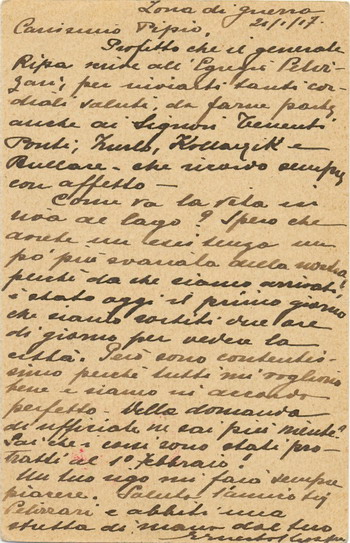 Zona di guerra
21/1/17.
Carissimo Pipio,
Profitto che il generale
Ripa scrive all'Egregio Pelriz-
zari, per inviarti tanti cor-
diali saluti, da farne parte
anche ai Signori Tenenti
Ponti, Zurlo, Kollarzik e
Bullare - che ricordo sempre
con affetto -
Come va la vita in
riva al lago? Spero che
avrete un esistenza un
po' più svariata della nostra,
perché da che siamo arrivati
è stato oggi il primo giorno
che siamo sortiti due ore
di giorno per vedere la
città. Però sono contentis-
simo perché tutti mi vogliono
bene e siamo in accordo
perfetto - Della domanda
di ufficiale ne sai più niente?
Sai che i corsi sono stati pro-
tratti al 1° febbraio?
Un tuo rigo mi farà sempre
piacere. Saluta l'amico Sig
Pelizzari e abbiti una
stretta di mano dal tuo
Ernesto